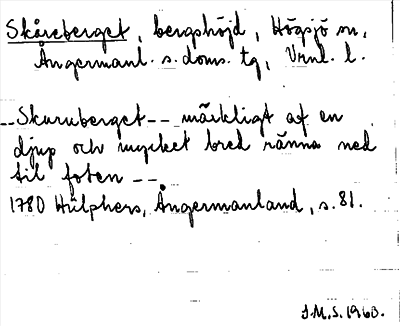 Skåreberget, bergshöjd, Högsjö sn,
Ångermanl. s. doms. tg, Vrnl. l.
-- Skuruberget -- märkligt af en
djup och mycket bred ränna ned
til foten --
1780 Hülphers, Ångermanland, s. 81.
J.M.S. 1960.